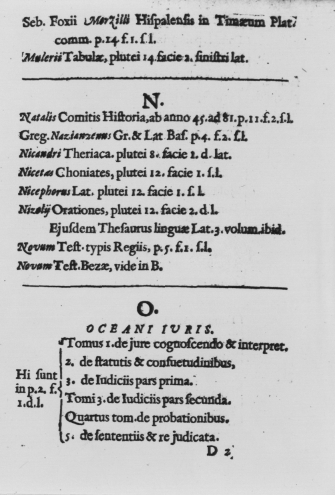 Seb. Foxii Morzilli Hispalensis in Timæum Plat.
comm. p.14. f.1. s.l.
Mulerii Tabulæ, plutei 14. facie 2. sinistri lat.
N.
Natalis Comitis Historia, ab anno 45. ad 81. p.11. f.2. s.l.
Greg. Nazianzenus Gr. & Lat Bas. p.4. f.2. s.l.
Nicandri Theriaca. plutei 8. facie 2. d. lat.
Nicetas Choniates, plutei 12. facie 1. s.l.
Nicephorus Lat. plutei 12. facie 1. s.l.
Nizolij Orationes, plutei 12. facie 2. d.l.
Ejusdem Thesaurus linguæ Lat. 3. volum. ibid.
Novum Test. typis Regiis, p.5. f.1. s.l.
Novum Test. Bezæ, vide in B.
O.
OCEANI IURIS.
Tomus 1. de jure cognoscendo & interpret.
2. de statutis & consuetudinibus,
3. de Iudiciis pars prima.
Hi sunt
in p.2. f.
1. d.l.
Tomi 3. de Iudiciis pars secunda.
Quartus tom. de probationibus.
5. de sententiis & re judicata.
D 2